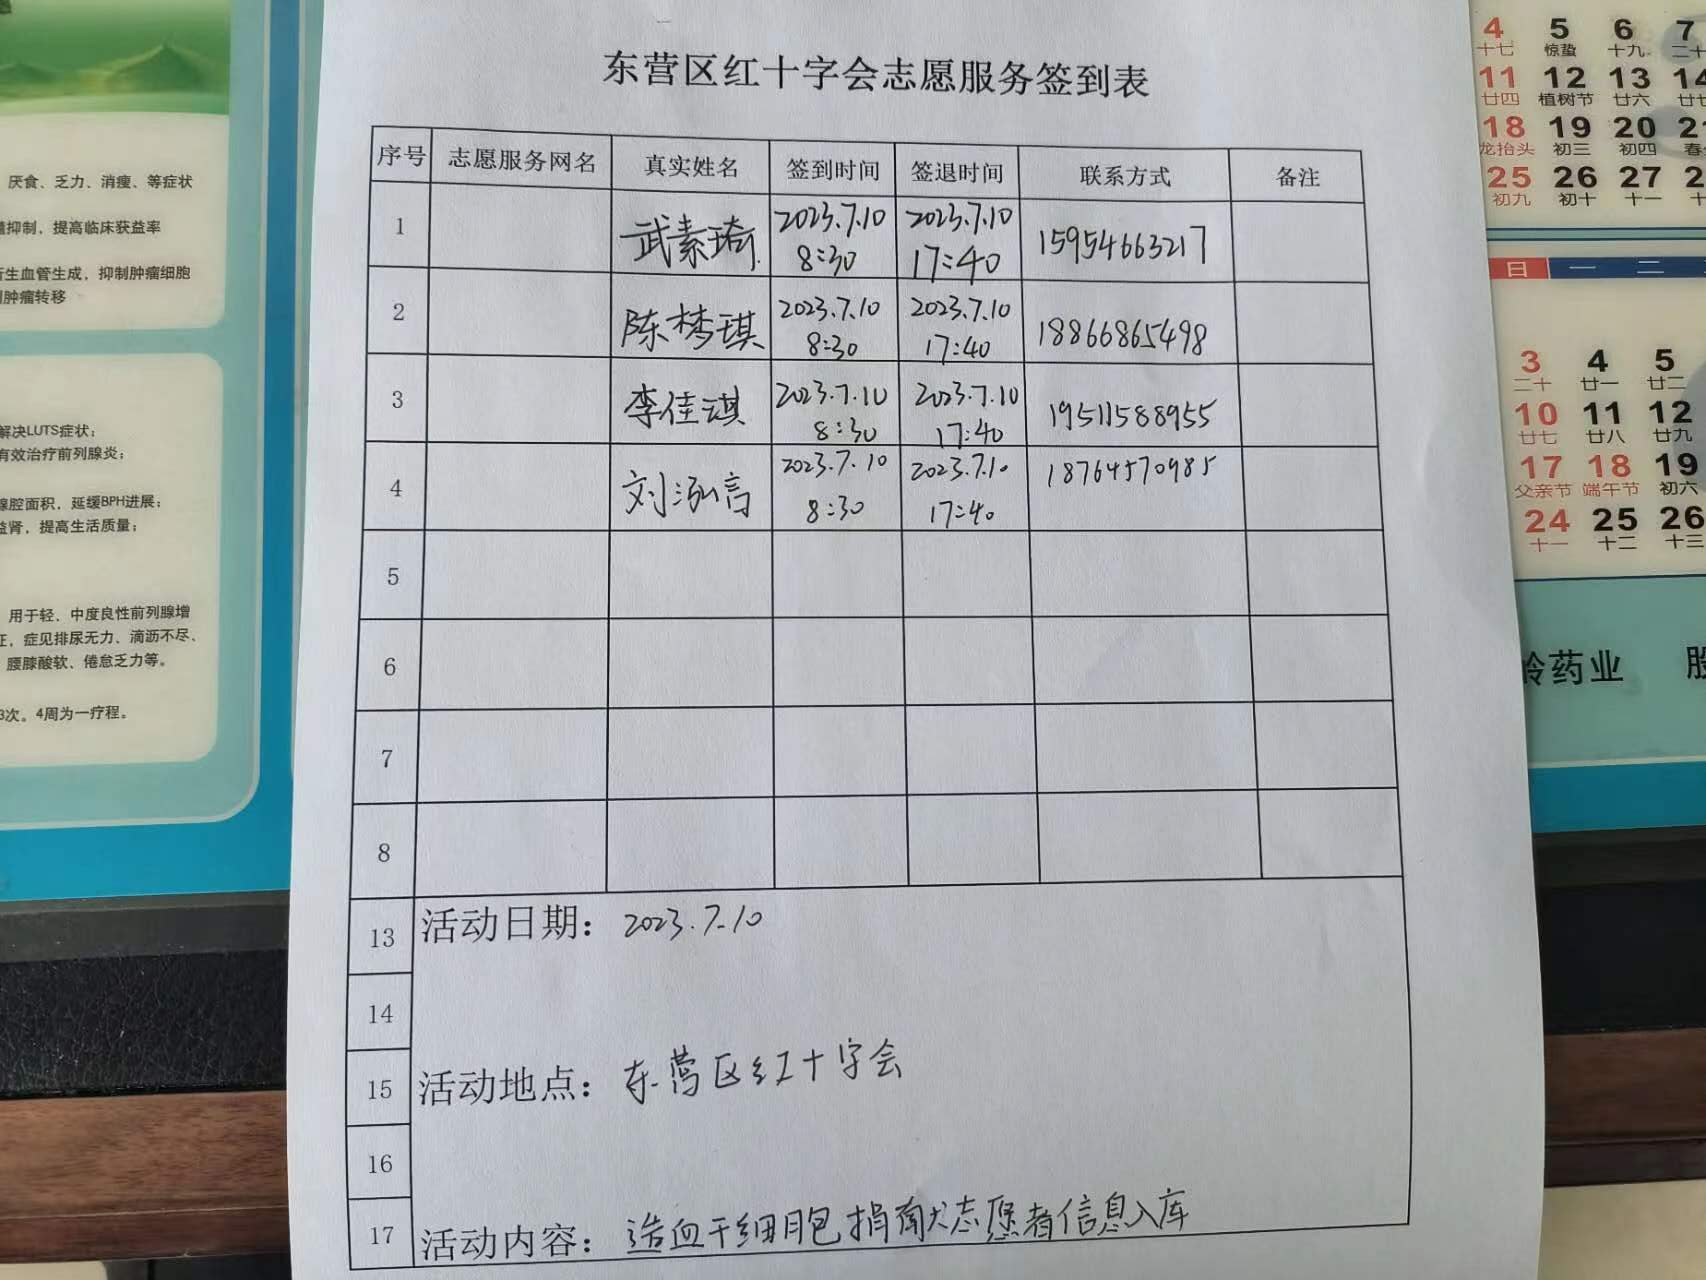 东营区红十字会志愿服务签到表
序号 志愿服务网名 真实姓名 签到时间 签退时间 联系方式 备注
1 武素琦 2023.7.10 8:30 2023.7.10 17:40 15954663217
2 陈梦琪 2023.7.10 8:30 2023.7.10 17:40 18866865498
3 李佳琪 2023.7.10 8:30 2023.7.10 17:40 19511588955
4 刘泓言 2023.7.10 8:30 2023.7.10 17:40 18764570985
5
6
7
8
13 活动日期：2023.7.10
14
15 活动地点：东营区红十字会
16
17 活动内容：造血干细胞捐献志愿者信息入库
厌食、乏力、消瘦、等症状
抑制，提高临床获益率
生血管生成，抑制肿瘤细胞
肿瘤转移
解决LUTS症状；
有效治疗前列腺炎；
腺腔面积，延缓BPH进展；
益肾，提高生活质量；
用于轻、中度良性前列腺增
症，症见排尿无力、滴沥不尽、
腰膝酸软、倦怠乏力等。
3次。4周为一疗程。
4 5 6 7
十七 惊蛰 十九 二十
11 12 13 14
廿四 植树节 廿六 廿七
18 19 20 21
龙抬头 初三 初四
25 26 27
初九 初十 十一
日 一 二
3 4 5
二十 廿一 廿二
10 11 12
廿七 廿八 廿九
17 18 19
父亲节 端午节 初六
24 25 26
十一 十二 十三
药业 股